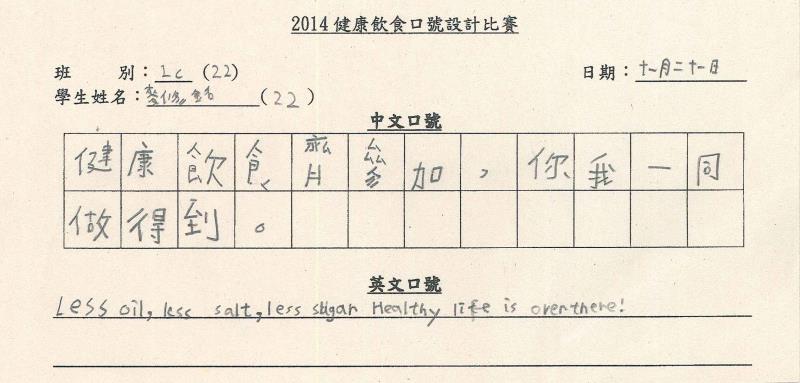 2014 健康飲食口號設計比賽
班　別：1c (22)　日期：十一月二十一日
學生姓名：(22)
中文口號
健康飲食齊參加，你我一同
做得到。
英文口號
Less oil, less salt, less sugar Healthy life is over there!